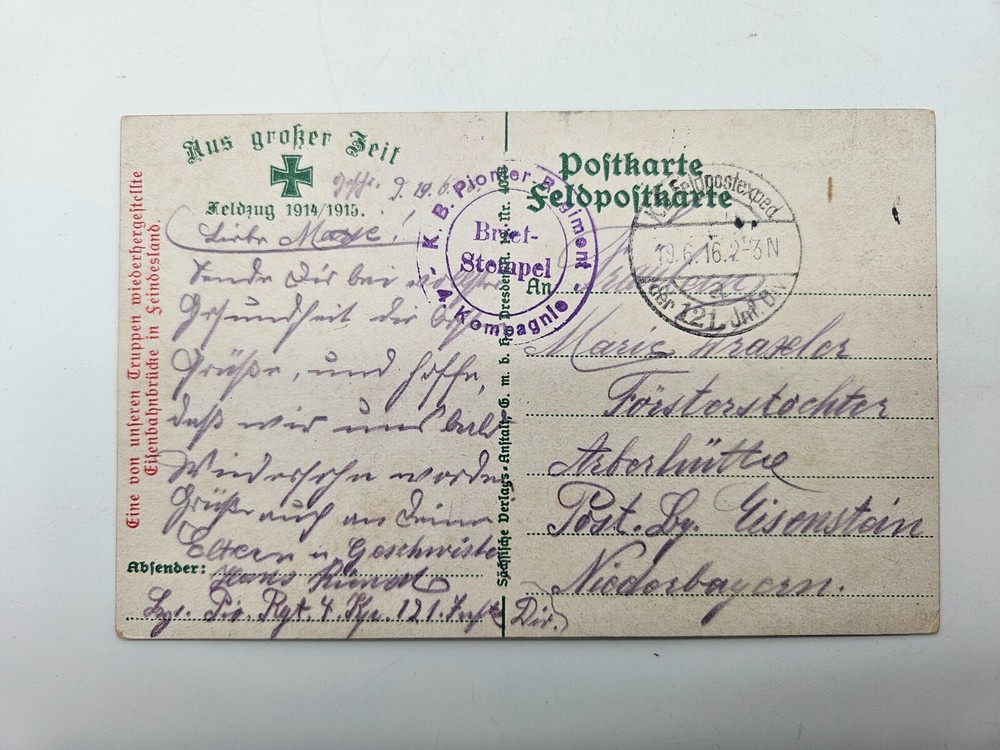 Aus großer Zeit
Feldzug 1914/1915.
Eine von unseren Truppen wiederhergestellte
Eisenbahnbrücke in Feindesland.
19. 6.
Liebe
Sende Dir bei
Gesundheit die
Grüße, und hoffe,
daß wir uns bald
Wiedersehn werden
Grüße auch an Deine
Eltern u. Geschwister
Absender: Hans
Pio. Rgt. 4. Kp. 121. Inft. Div.
K. B. Pionier-Regiment
Brief-
Stempel
4. Kompagnie
Sächsische Verlags-Anstalt, G. m. b. H., Dresden-A. Nr.
Postkarte
Feldpostkarte
Feldpostexped.
19.6.16.2-3N
a
der 121. Inf. Div.
An
Marie
Försterstochter
Arberhütte
Post. Bg. Eisenstein
Niederbayern.